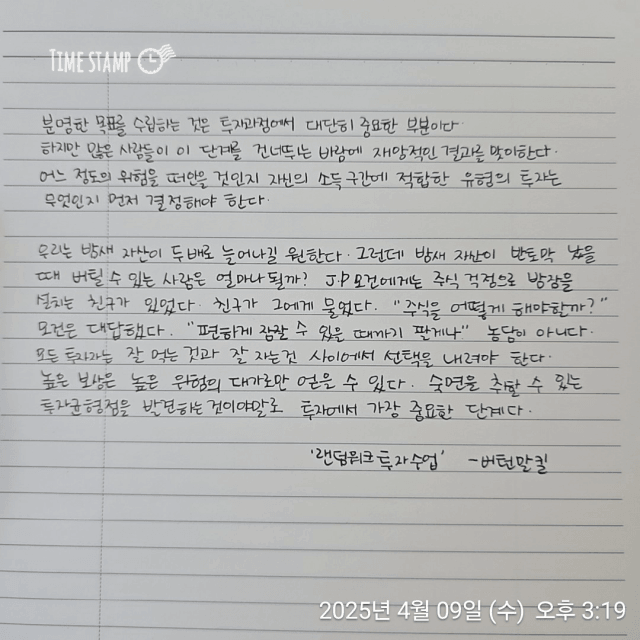 TIME STAMP
분명한 목표를 수립하는 것은 투자과정에서 대단히 중요한 부분이다.
하지만 많은 사람들이 이 단계를 건너뛰는 바람에 재앙적인 결과를 맞이한다.
어느 정도의 위험을 떠안을 것인지 자신의 소득구간에 적합한 유형의 투자는
무엇인지 먼저 결정해야 한다.
우리는 밤새 자산이 두배로 늘어나길 원한다. 그런데 밤새 자산이 반토막 났을
때 버틸 수 있는 사람은 얼마나 될까? J.P 모건에게는 주식 걱정으로 밤잠을
설치는 친구가 있었다. 친구가 그에게 물었다. "주식을 어떻게 해야할까?"
모건은 대답했다. "편하게 잠잘 수 있을 때까지 팔게나" 농담이 아니다.
모든 투자자는 잘 먹는 것과 잘 자는것 사이에서 선택을 내려야 한다.
높은 보상은 높은 위험의 대가로만 얻을 수 있다. 숙면을 취할 수 있는
투자균형점을 발견하는것이야말로 투자에서 가장 중요한 단계다.
'랜덤워크 투자수업' -버턴말킬
2025년 4월 09일 (수) 오후 3:19